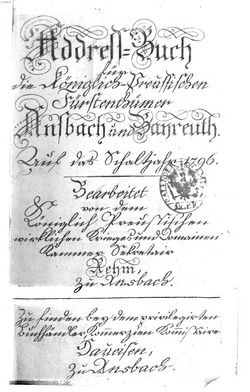 Addreß-Buch
für
die Königlich-Preussischen
Fürstenthümer
Ansbach und Bayreuth.
Auf das Schaltjahr 1796.
Bearbeitet
von dem
Königlich Preussischen
wirklichen Krieges und Domainen
Kammer Sekretair
Rehm,
zu Ansbach.
Zu finden bey dem privilegirten
Buchhändler, Commerzien Commissaire
zu Ansbach.